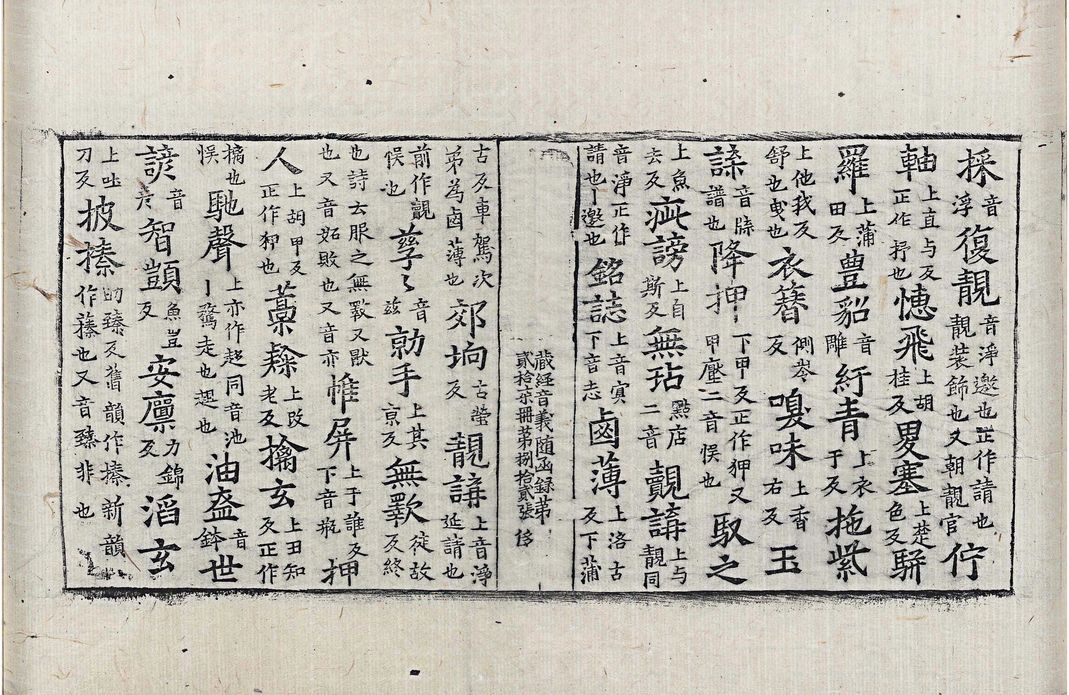 採音浮復靚音淨邀也正作請也靚裝飾也又朝靚官佇
軸上直与反正作抒也憓飛上胡桂反畟塞上楚色反駢
羅上蒲田反豊貂音雕紆青上衣于反拖紫
上他我反舒也曵也衣簮側岑反嗅味上香右反玉
諜音牒譜也降押下甲反正作狎又甲壓二音悮也馭之
上魚去反疵謗上自斯反無玷點店二音覿講上与靚同
音淨正作請也丨邀也銘誌上音冥下音志鹵薄上洛古反下蒲
藏経音義随函録苐
貳拾柒冊苐捌拾貳張 侈
古反車駕次苐為鹵薄也郊坰古螢反靚講上音淨延請也
前作觀悮也孳〻音兹勍手上其亰反無斁徒故反終
也詩云服之無斁又猒也又音妬敗也又音亦帷屏上于誰反下音瓶押
人上胡甲反正作狎也藁上攺老反摛玄上丑知反正作
摛也悮馳聲上亦作趍同音池丨騖走也趍也油盔音鉢世
諺音彦智顗魚豈反安廪力錦反滔玄
上吐刀反披榛助臻反舊韻作搸新韻作蓁也又音臻非也